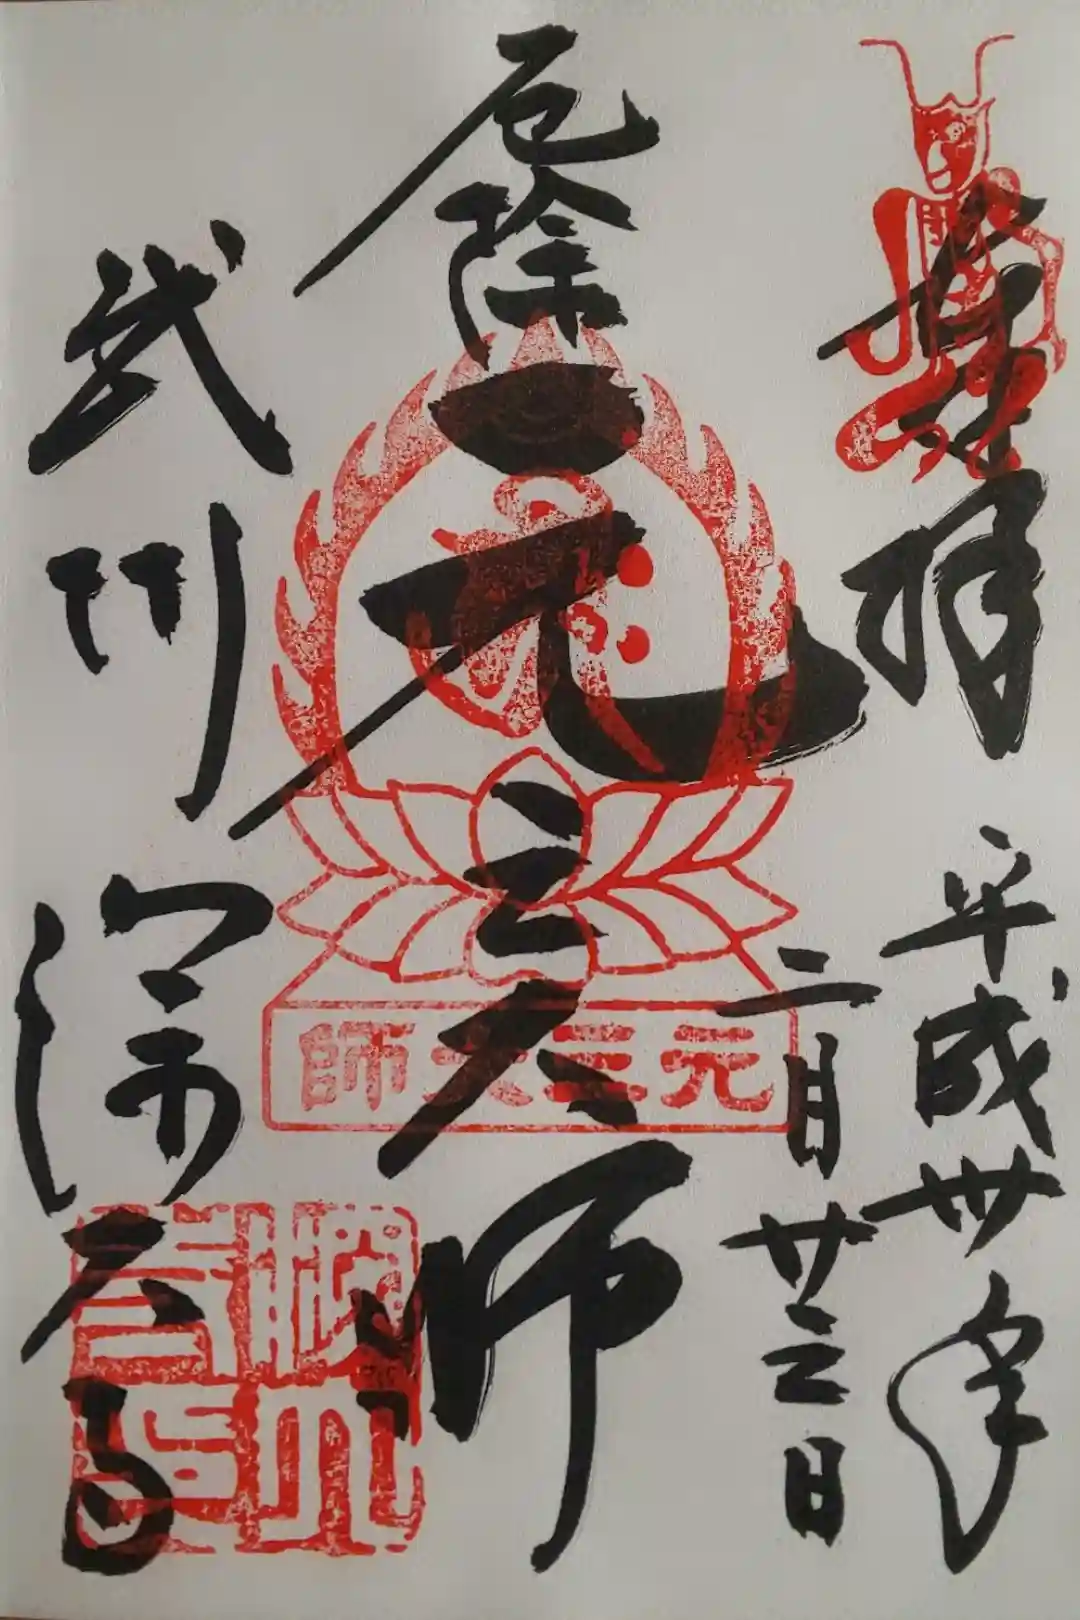 奉拝
平成卅年
二月廿三日
厄除
元三大師
武州
深大寺
元三大師